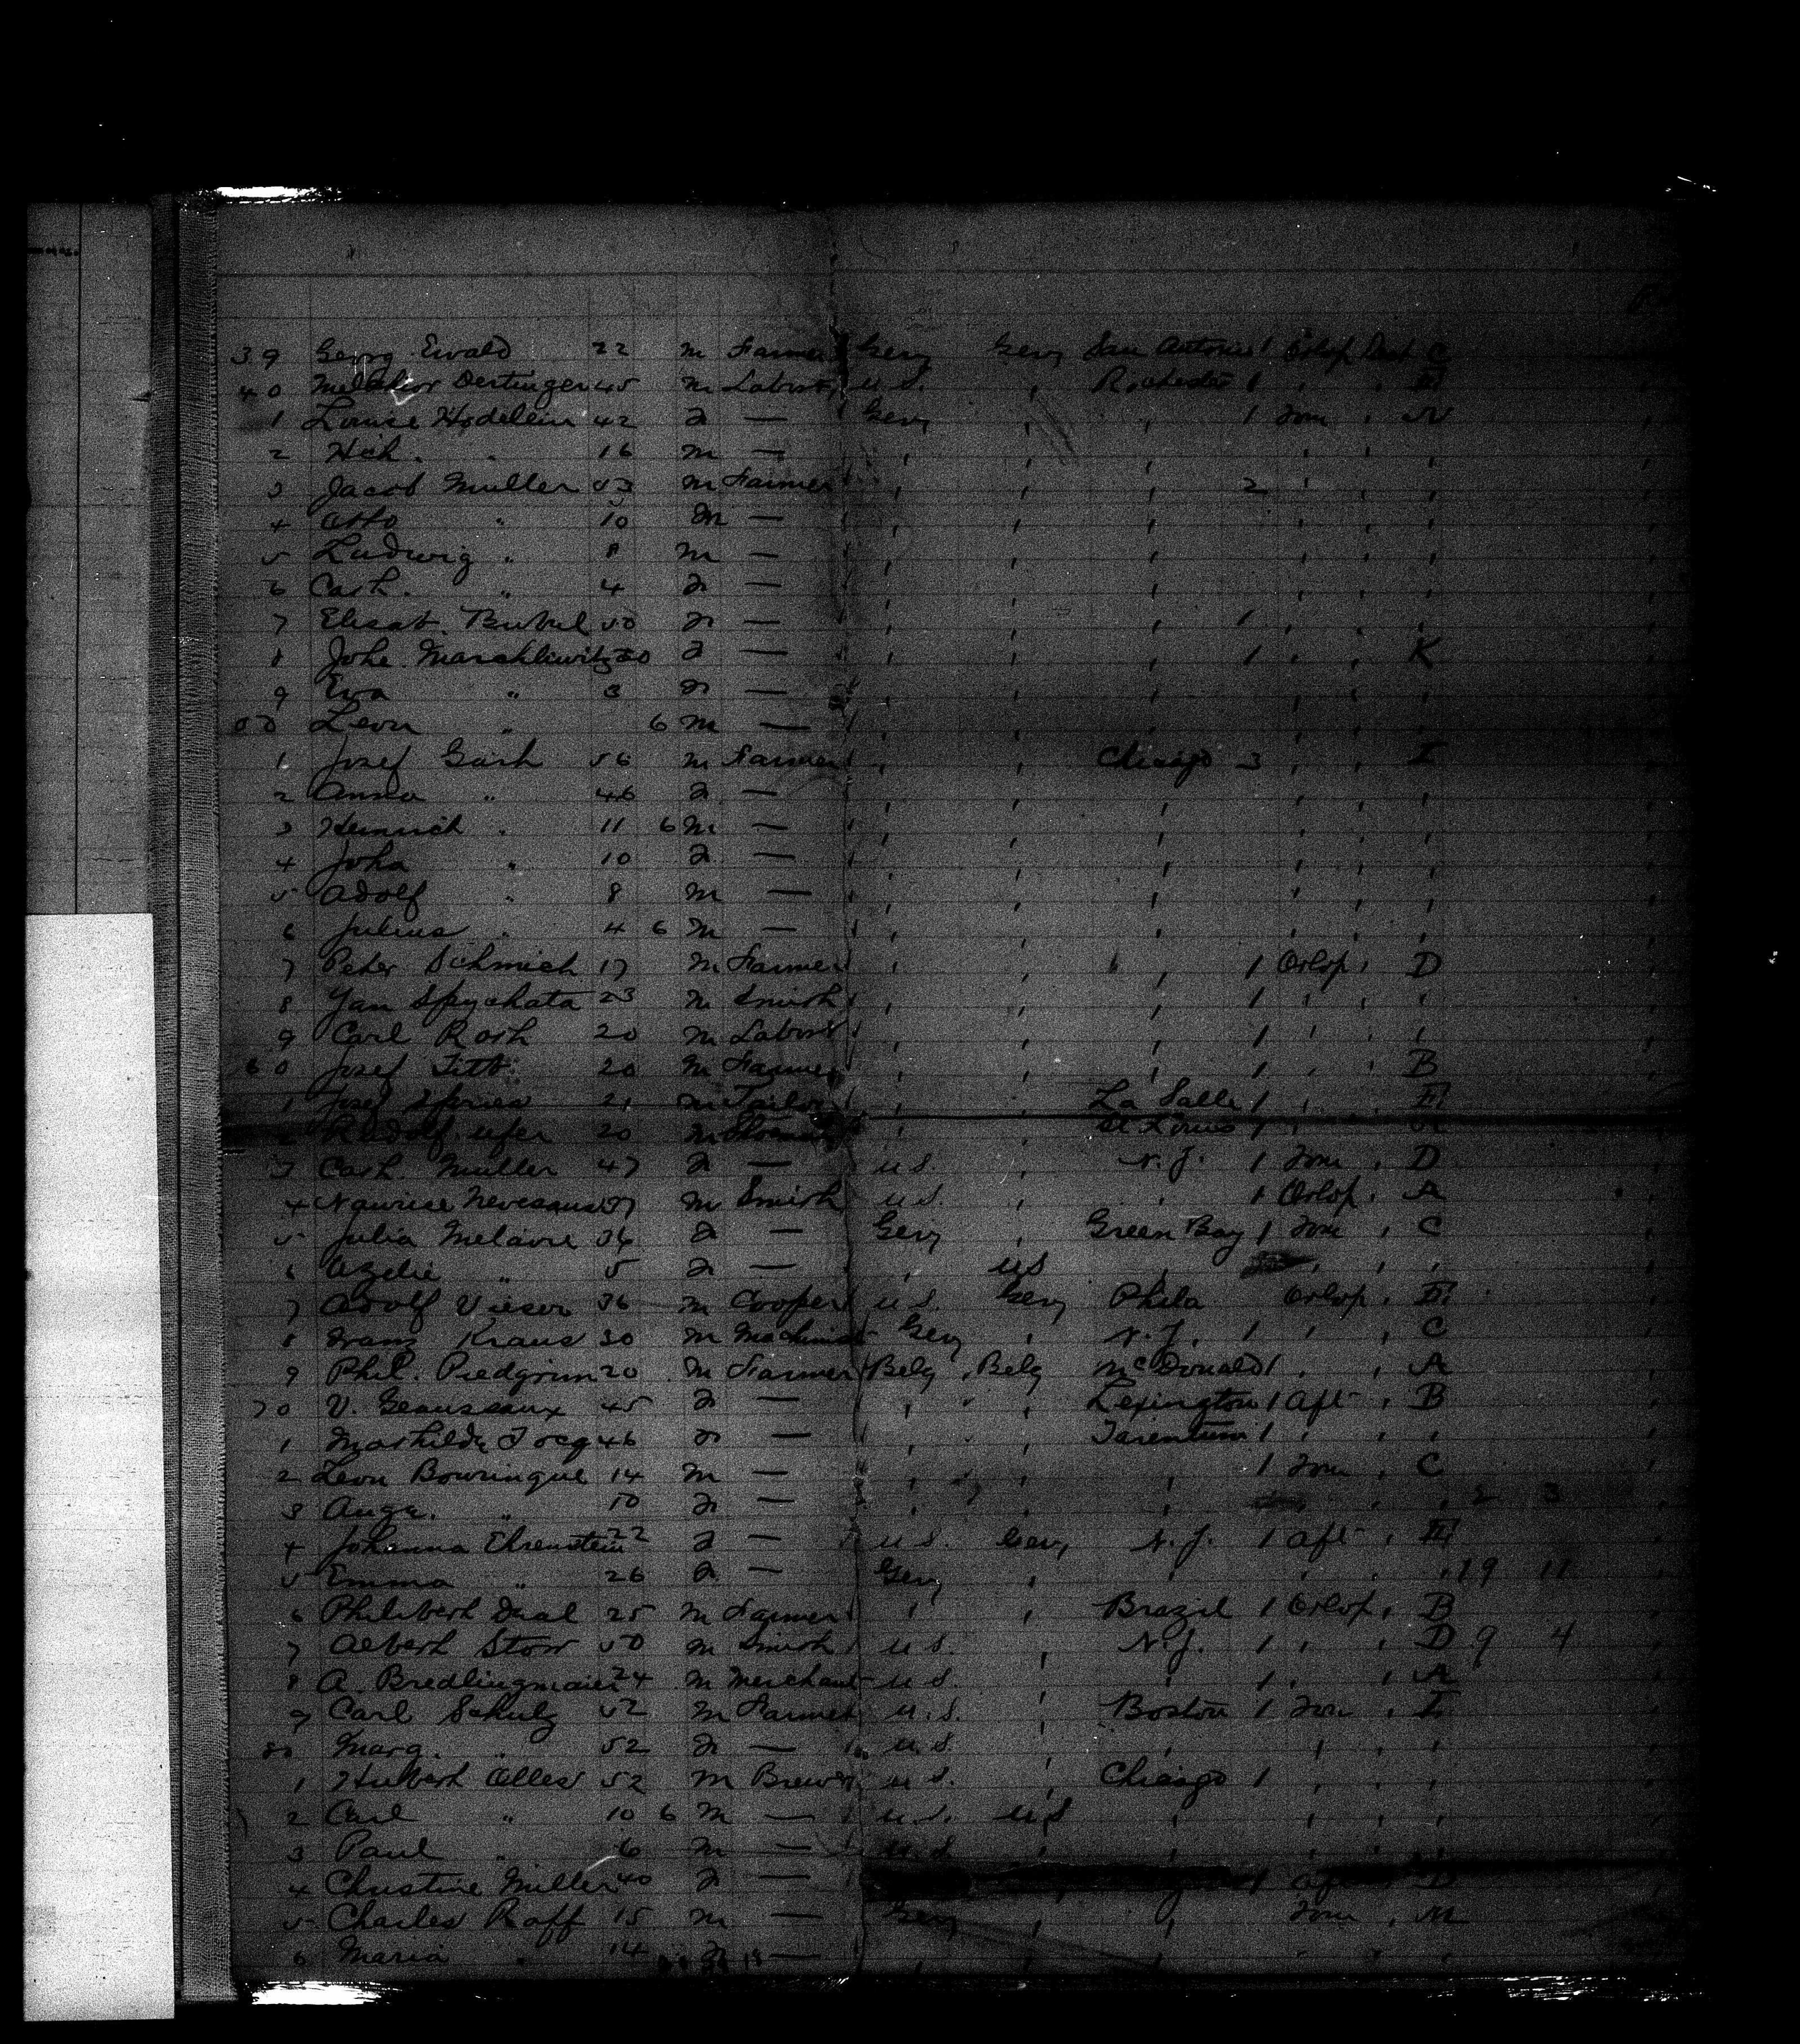 39 Georg Ewald 22 m Farmer Gery Gery San Antonio 1 Orlop Deck C
40 Melchior Dertinger 45 m Labour U.S. , Rochester 1 , , III
1 Louise Hodelein 42 f — Gery , , 1 , N
2 Hch. " 16 m — , , , , , ,
3 Jacob Muller 53 m Farmer , , , 2 , , ,
4 Otto " 10 m — , , , , , ,
5 Ludwig " 8 m — , , , , , ,
6 Cath. " 4 f — , , , , , ,
7 Elisab. 50 f — , , , 1 , , ,
8 Johe. Marchliwitz 30 f — , , , 1 , , K
9 Eva " 3 f — , , , , , ,
50 Leon " 6 m — , , , , , ,
1 Josef Gash 56 m Farmer , , Chicago 3 , , I
2 Anna " 46 f — , , , , , ,
3 Heinrich " 11 6 m — , , , , , ,
4 Joha " 10 f — , , , , , ,
5 Adolf " 8 m — , , , , , ,
6 Julius " 4 6 m — , , , , , ,
7 Peter Schmich 17 m Farmer , , , 1 Orlop , D
8 Jan Spychata 23 m Smith , , , 1 , , ,
9 Carl Roth 20 m Labour , , , 1 , , ,
60 Josef Titt 20 m Farmer , , , 1 , , B
1 Josef 21 m Tailor , , La Salle 1 , , III
2 Rudolf Ufer 20 m , , St Louis 1 , ,
3 Cath. Muller 47 f — U.S. , N.J. 1 , D
4 37 m Smith U.S. , , 1 Orlop , A
5 Julia Melaire 36 f — Gery , Green Bay 1 , C
6 Azelie " 5 f — , US , , , ,
7 Adolf Vieser 36 m Cooper U.S. Gery Phila Orlop , III
8 Franz Kraus 30 m Machinist Gery , N.J. 1 , , C
9 Phil. Piedgrim 20 m Farmer Belg Belg McDonald 1 , , A
70 V. Geaussaux 45 f — , , Lexington 1 Aft , B
1 Mathilde Tocq 46 f — , , Tarentum 1 , , ,
2 Leon Bouringue 14 m — , , , 1 , C
3 Auge. " 10 f — , , , , , 2 3
4 Johanna Ehrenstein 22 f — U.S. Gery N.J. 1 Aft , III
5 Emma " 26 f — Gery , , , , , 19 11
6 Philibert Dual 25 m Farmer , , Brazil 1 Orlop , B
7 Albert Storr 50 m Smith U.S. , N.J. 1 , , D 9 4
8 A. Bredlingmaier 24 m Merchant U.S. , , 1 , , A
9 Carl Schulz 52 m Farmer U.S. , Boston 1 , I
80 Marg. " 52 f — U.S. , , , , ,
1 Hubert Olles 52 m Brewer U.S. , Chicago 1 , , ,
2 Carl " 10 6 m — U.S. US , , , ,
3 Paul " 6 m — U.S , , , , ,
4 Christine Miller 40 f — 1 Aft D
5 Charles Raff 15 m — Gery , , , M
6 Maria " 14 f — , , , , , ,